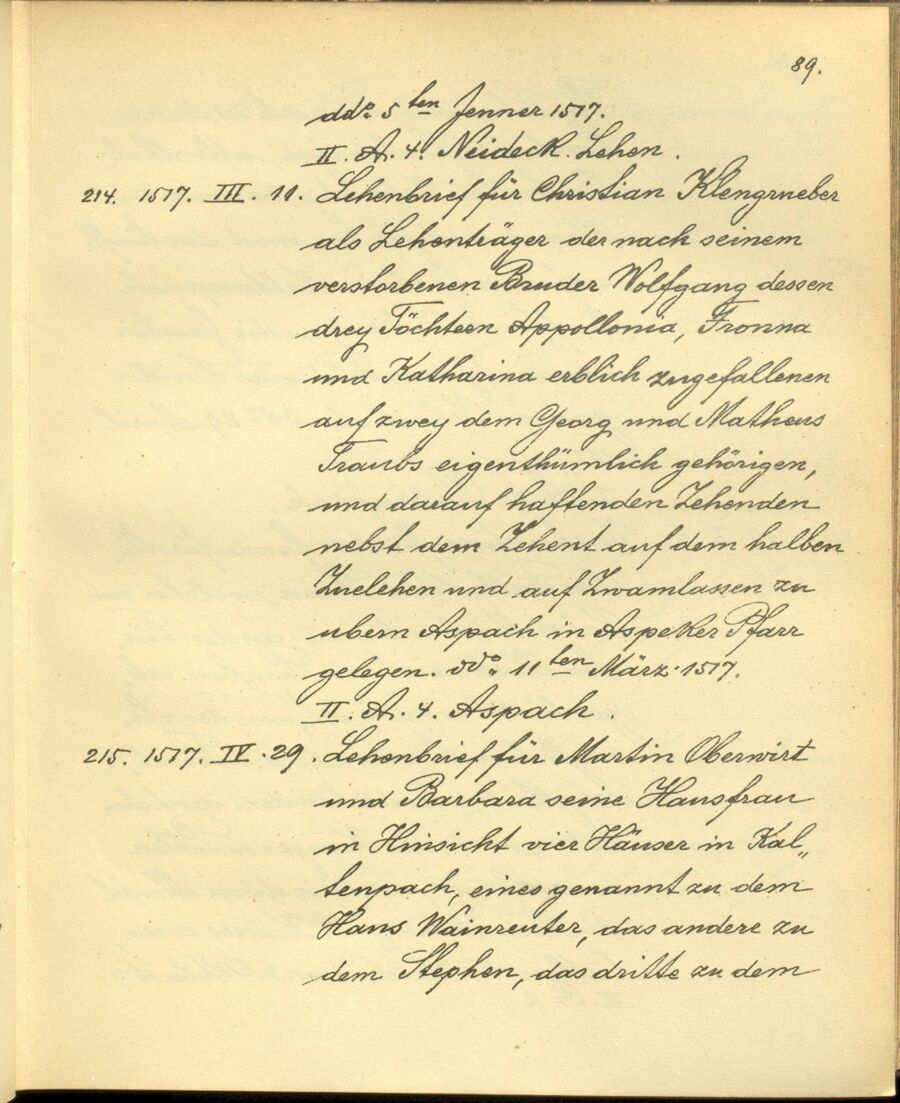 89.
ddo: 5ten Jenner 1517.
II. A. 4. Neideck. Lehen.
214. 1517. III. 11. Lehenbrief für Christian Klengrueber
als Lehenträger der nach seinem
verstorbenen Bruder Wolfgang dessen
drey Töchtern Appollonia, Fronna
und Katharina erblich zugefallenen
auf zwey dem Georg und Matheus
Traubs eigenthümlich gehörigen,
und darauf haftenden Zehenden
nebst dem Zehent auf dem halben
Zuelehen und auf Zwamlassen zu
ubern Aspach in Aspeker Pfarr
gelegen. ddo: 11ten März 1517.
II. A. 4. Aspach.
215. 1517. IV. 29. Lehenbrief für Martin Oberwirt
und Barbara seine Hausfrau
in Hinsicht vier Häuser in Kal„
tenpach, eines genannt zu dem
Hans Wainreuter, das andere zu
dem Stephen, das dritte zu dem